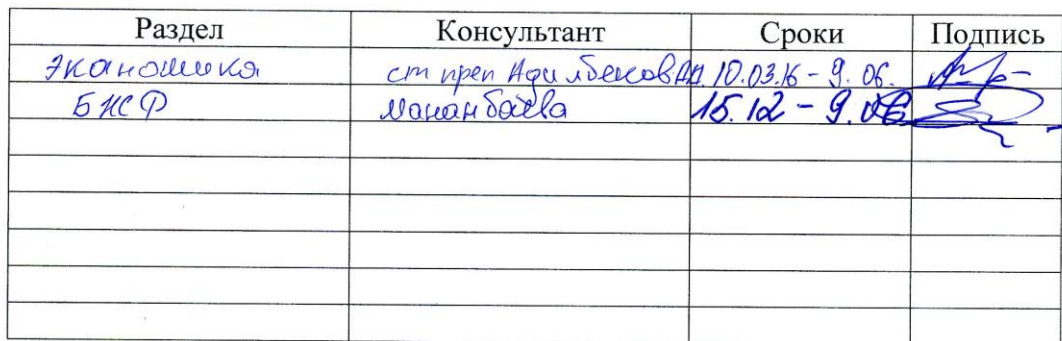 Раздел Консультант Сроки Подпись
Экономика ст преп Адилбеков 10.03.16 - 9.06.
БЖФ Мананбаева 15.12 - 9.06